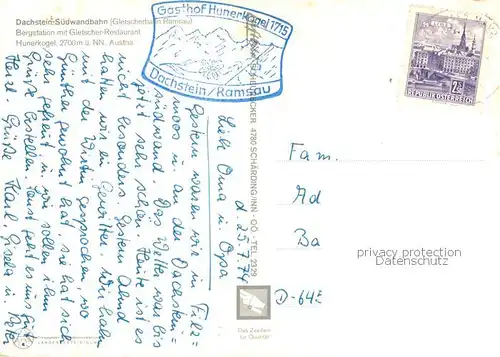 Dachstein-Südwandbahn (Gletscherbahn Ramsau)
Bergstation mit Gletscher-Restaurant
Hunerkogel, 2700 m ü. NN., Austria
Gasthof Hunerkogel 1715
Dachstein/Ramsau
4780 SCHÄRDING/INN - OÖ. - TEL. 2329
REPUBLIK ÖSTERREICH
d. 25.7.74
Lieb Oma u. Opa
Gestern waren wir in Filz=
moos u. an der Dachstein=
südwand. Das Wetter war bis
jetzt sehr schön. Heute ist es
nicht besonders. Gestern Abend
hatten wir ein Gewitter. Wir haben
mit der Wirtin gesprochen, wo
Günther gewohnt hat sie hat sich
sehr gefreut u. wir sollen ihm
Grüße bestellen. Sonst geht es uns gut
Herzl. Grüße Karl, Gisela u. Peter
Fam.
Ad
Ba
D-64
privacy protection
veikkos.com
Das Zeichen
für Qualität